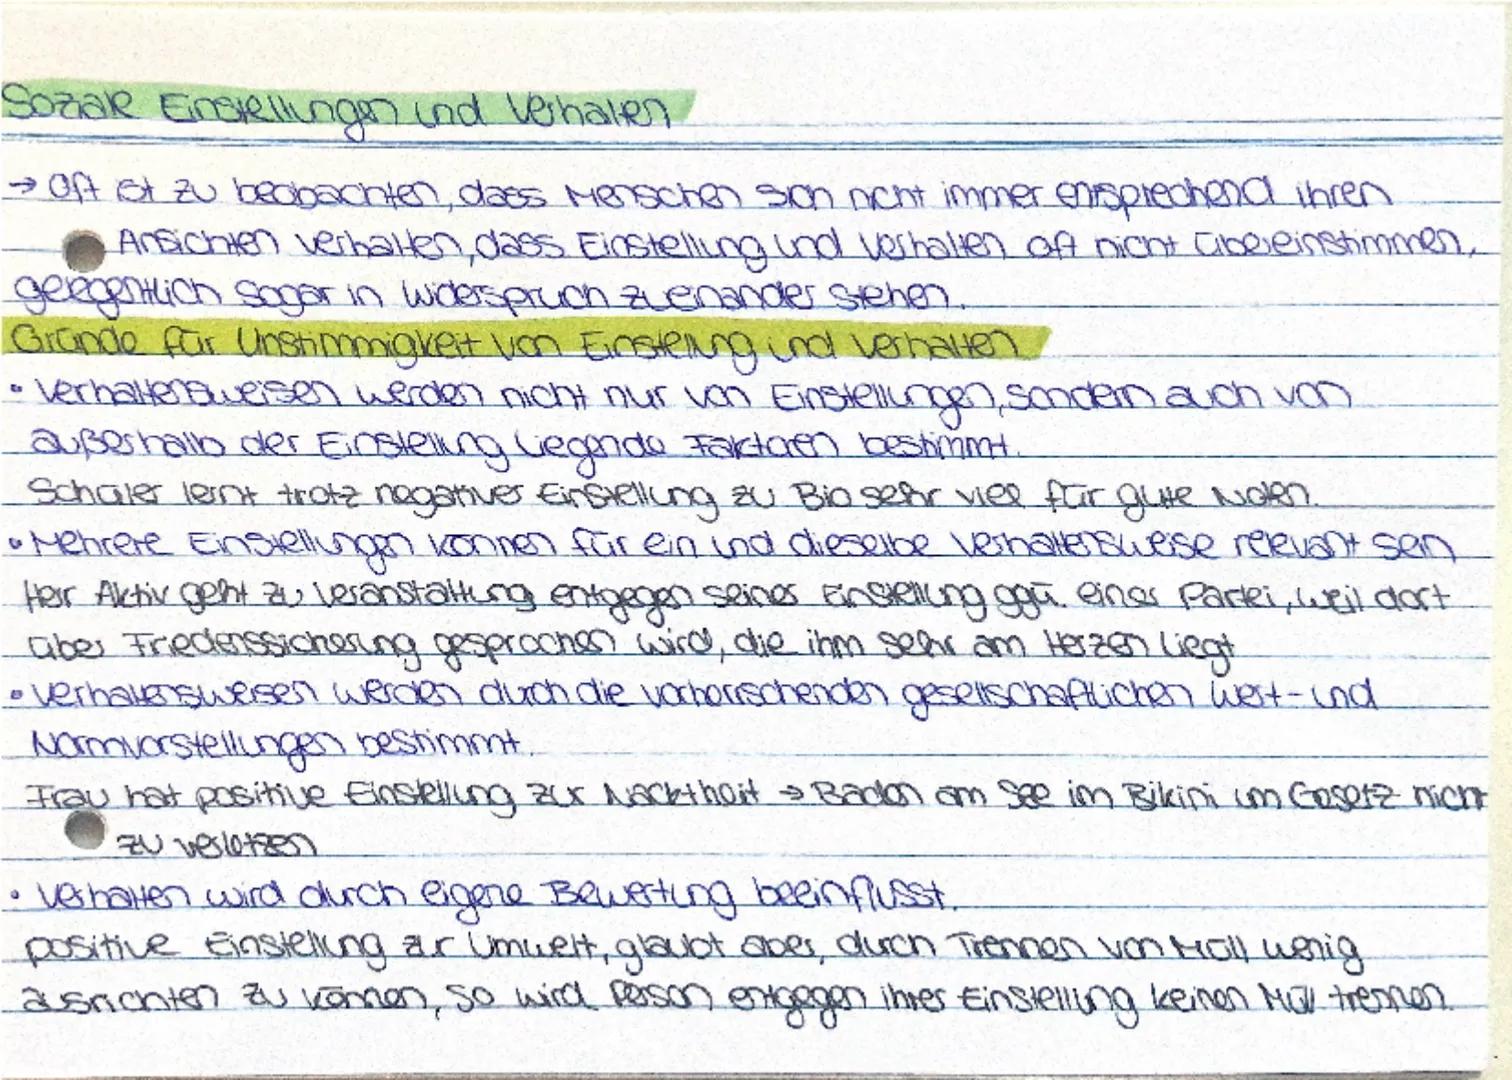 Soziale Einstellungen und Verhalten
→ Oft ist zu beobachten, dass Menschen sich nicht immer entsprechend ihren
Ansichten verhalten, dass Einstellung und Verhalten oft nicht übereinstimmen,
gelegentlich sogar in Widerspruch zueinander stehen.
Gründe für Unstimmigkeit von Einstellung und Verhalten
• Verhaltensweisen werden nicht nur von Einstellungen, sondern auch von
außerhalb der Einstellung liegende Faktoren bestimmt.
Schüler lernt trotz negativer Einstellung zu Bio sehr viel für gute Noten.
• Mehrere Einstellungen können für ein und dieselbe Verhaltensweise relevant sein
Herr Aktiv geht zu Veranstaltung entgegen seiner Einstellung ggü. einer Partei, weil dort
über Friedenssicherung gesprochen wird, die ihm sehr am Herzen liegt
• Verhaltensweisen werden durch die vorherrschenden gesellschaftlichen Wert- und
Normvorstellungen bestimmt.
Frau hat positive Einstellung zur Nacktheit → Baden am See im Bikini um Gesetz nicht
zu verletzen
• Verhalten wird durch eigene Bewertung beeinflusst.
positive Einstellung zur Umwelt, glaubt aber, durch Trennen von Müll wenig
ausrichten zu können, so wird Person entgegen ihrer Einstellung keinen Müll trennen.